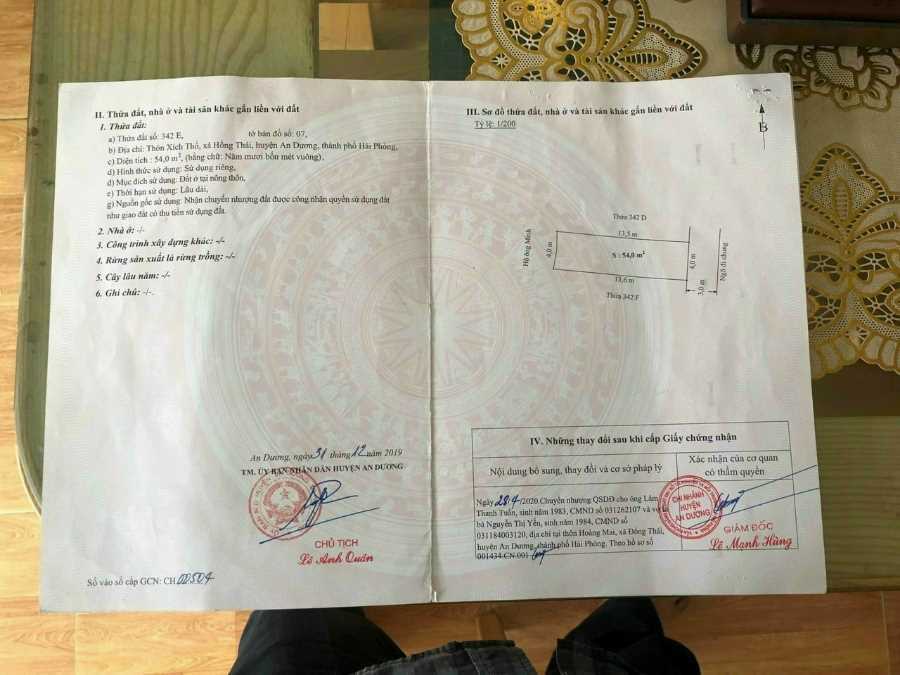 II. Thửa đất, nhà ở và tài sản khác gắn liền với đất
1. Thửa đất:
a) Thửa đất số: 342 E, tờ bản đồ số: 07,
b) Địa chỉ: Thôn Xích Thổ, xã Hồng Thái, huyện An Dương, thành phố Hải Phòng,
c) Diện tích : 54,0 m², (bằng chữ: Năm mươi bốn mét vuông),
d) Hình thức sử dụng: Sử dụng riêng,
đ) Mục đích sử dụng: Đất ở tại nông thôn,
e) Thời hạn sử dụng: Lâu dài,
g) Nguồn gốc sử dụng: Nhận chuyển nhượng đất được công nhận quyền sử dụng đất
như giao đất có thu tiền sử dụng đất.
2. Nhà ở: -/-
3. Công trình xây dựng khác: -/-
4. Rừng sản xuất là rừng trồng: -/-
5. Cây lâu năm: -/-
6. Ghi chú: -/-.
An Dương, ngày 31 tháng 12 năm 2019
TM. ỦY BAN NHÂN DÂN HUYỆN AN DƯƠNG
CHỦ TỊCH
Lê Anh Quân
Số vào sổ cấp GCN: CH 00504
III. Sơ đồ thửa đất, nhà ở và tài sản khác gắn liền với đất
Tỷ lệ: 1/200
B
Thửa 342 D
13,5 m
Hộ ông Minh
4,0 m
S : 54,0 m²
4,0 m
Ngõ đi chung
13,6 m
3,0 m
Thửa 342 F
IV. Những thay đổi sau khi cấp Giấy chứng nhận
Nội dung bổ sung, thay đổi và cơ sở pháp lý
Xác nhận của cơ quan
có thẩm quyền
Ngày 28/4/2020 Chuyển nhượng QSDĐ cho ông Lâm
Thanh Tuấn, sinh năm 1983, CMND số 031262107 và vợ là
bà Nguyễn Thị Yến, sinh năm 1984, CMND số
031184003120, địa chỉ tại thôn Hoàng Mai, xã Đồng Thái,
huyện An Dương, thành phố Hải Phòng. Theo hồ sơ số
001434.CN.001
CHI NHÁNH
HUYỆN
AN DƯƠNG
GIÁM ĐỐC
Lê Mạnh Hùng